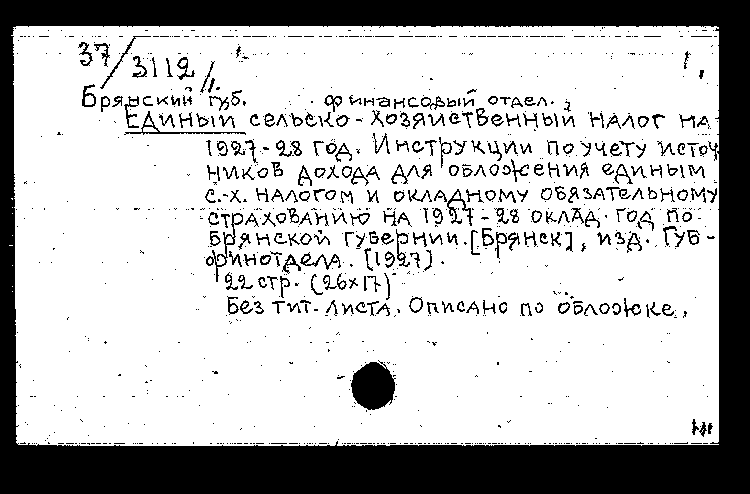 37/3112
Брянский губ. финансовый отдел.
Единый сельско-хозяйственный налог на
1927-28 год. Инструкции по учету источ
ников дохода для обложения единым
с.-х. налогом и окладному обязательному
страхованию на 1927-28 оклад. год по
Брянской губернии. [Брянск], изд. Губ-
финотдела. [1927].
22 стр. (26х17)
Без тит. листа. Описано по обложке.